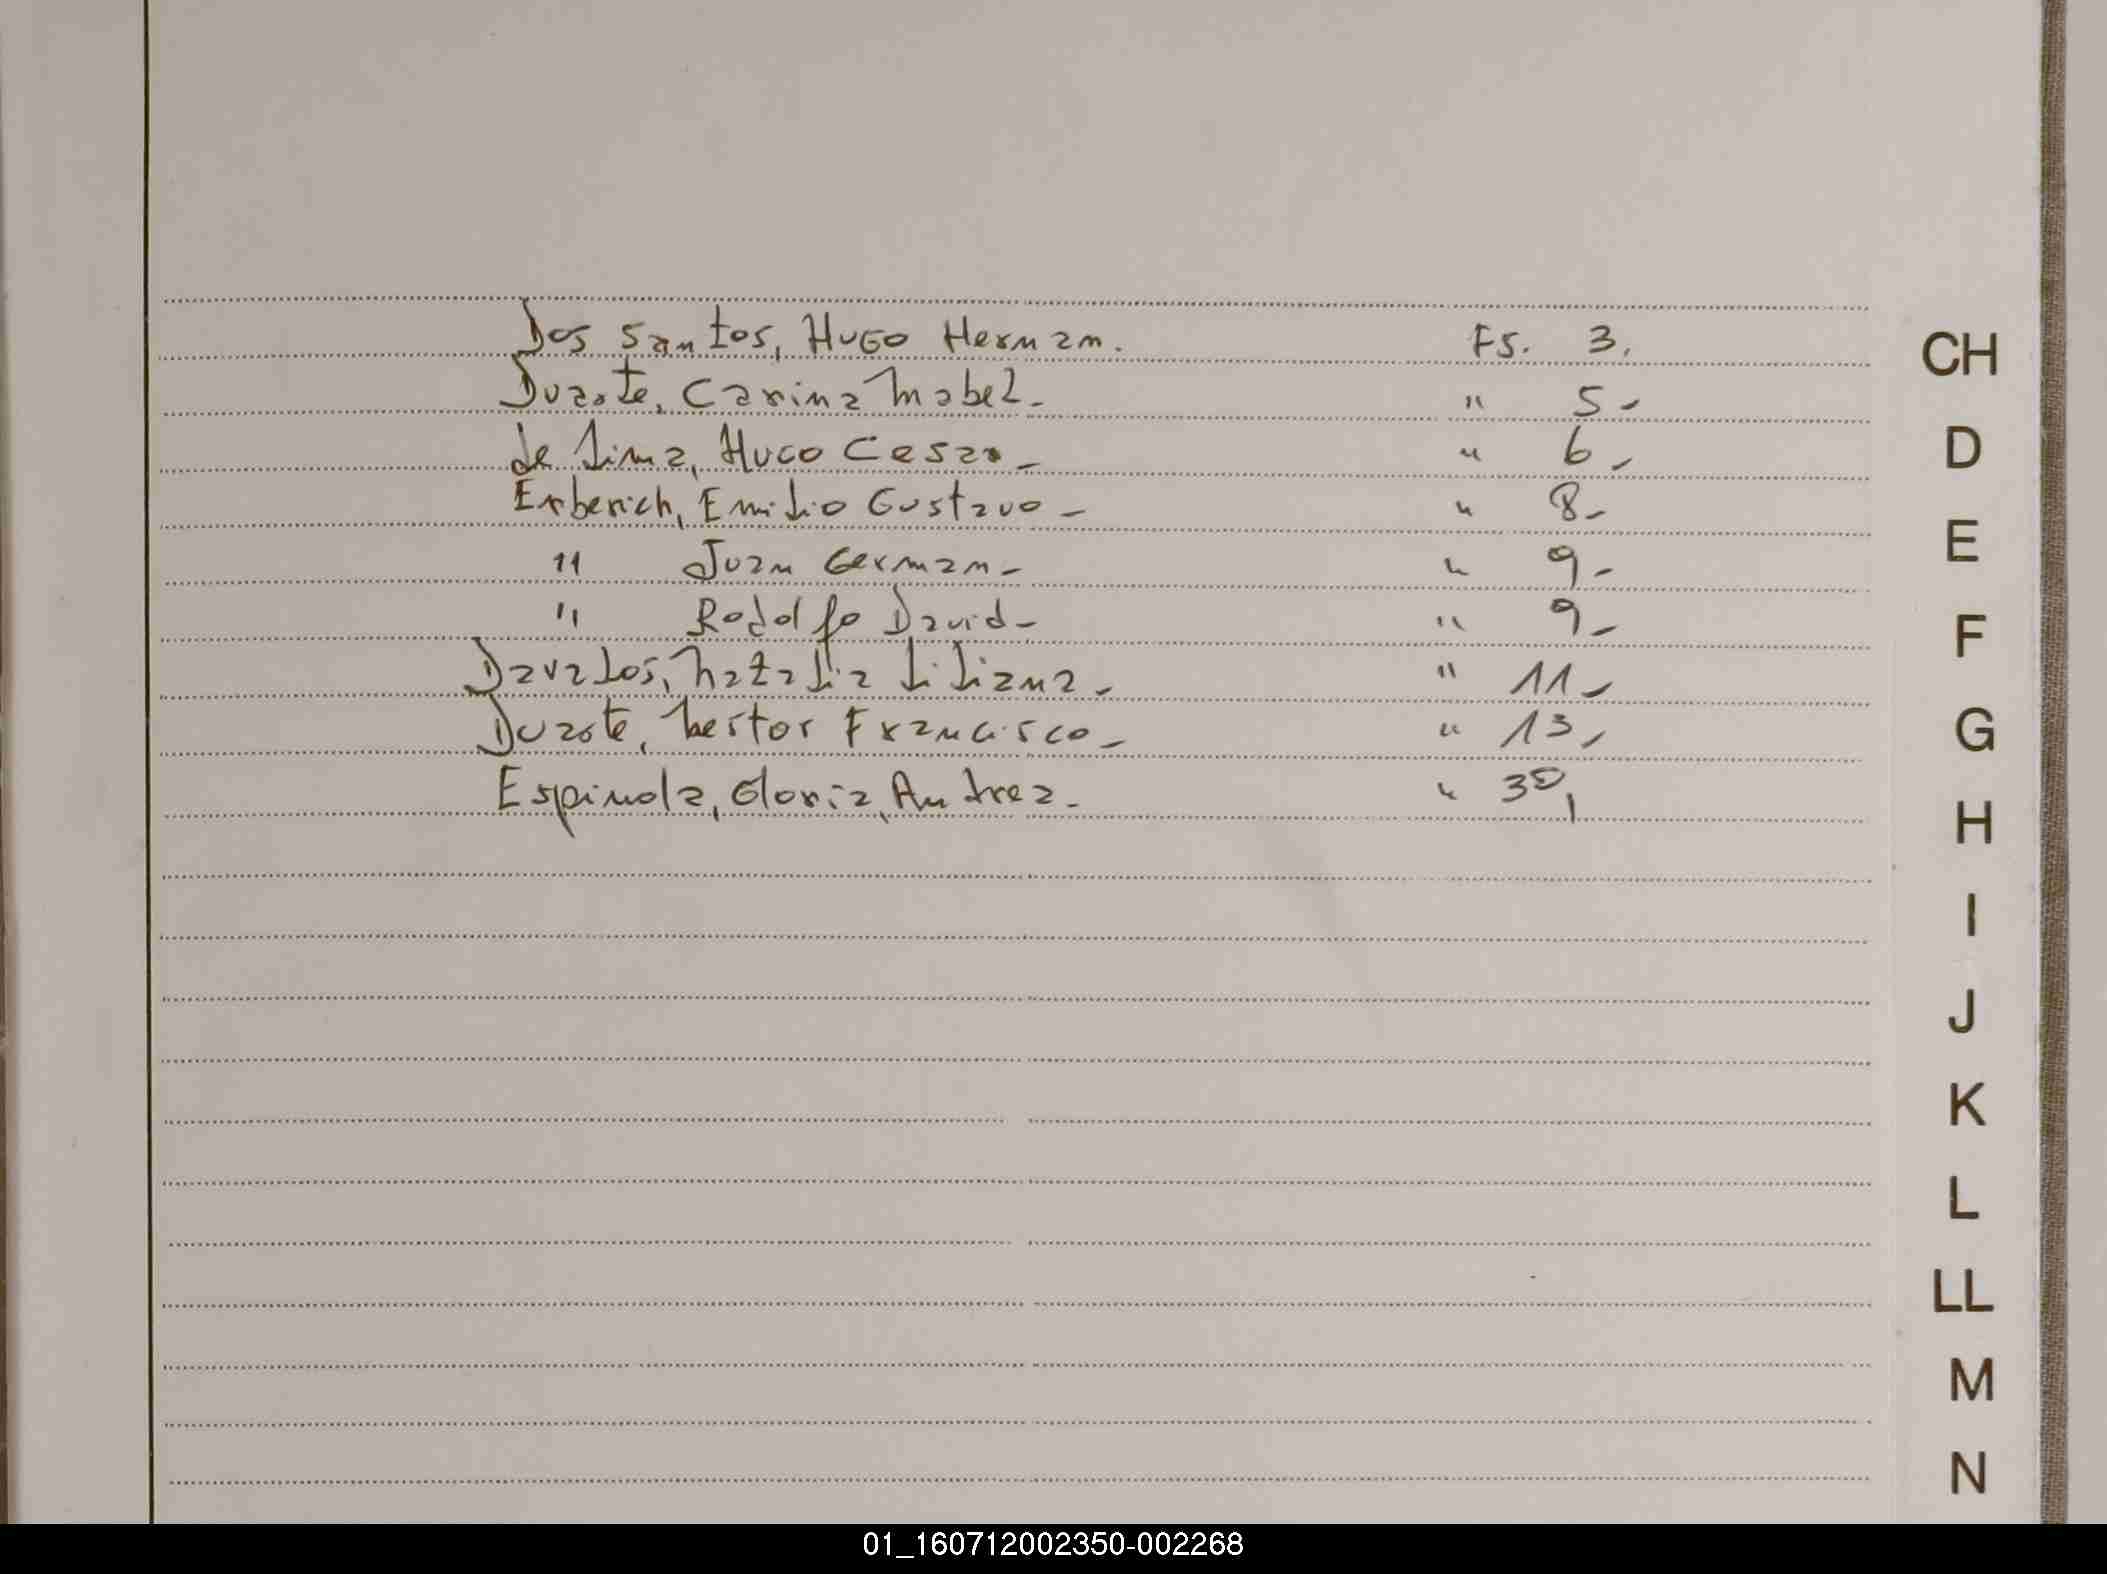 Dos Santos, Hugo Hernan. Fs. 3.
Duarte, Carina Mabel - " 5 -
de Lima, Hugo Cesar - " 6 -
Erberich, Emilio Gustavo - " 8 -
" Juan German - " 9 -
" Rodolfo David - " 9 -
Davalos, Natalia Liliana - " 11 -
Duarte, Nestor Francisco - " 13 -
Espinola, Gloria, Andrea - " 30,
CH
D
E
F
G
H
I
J
K
L
LL
M
N
01_160712002350-002268